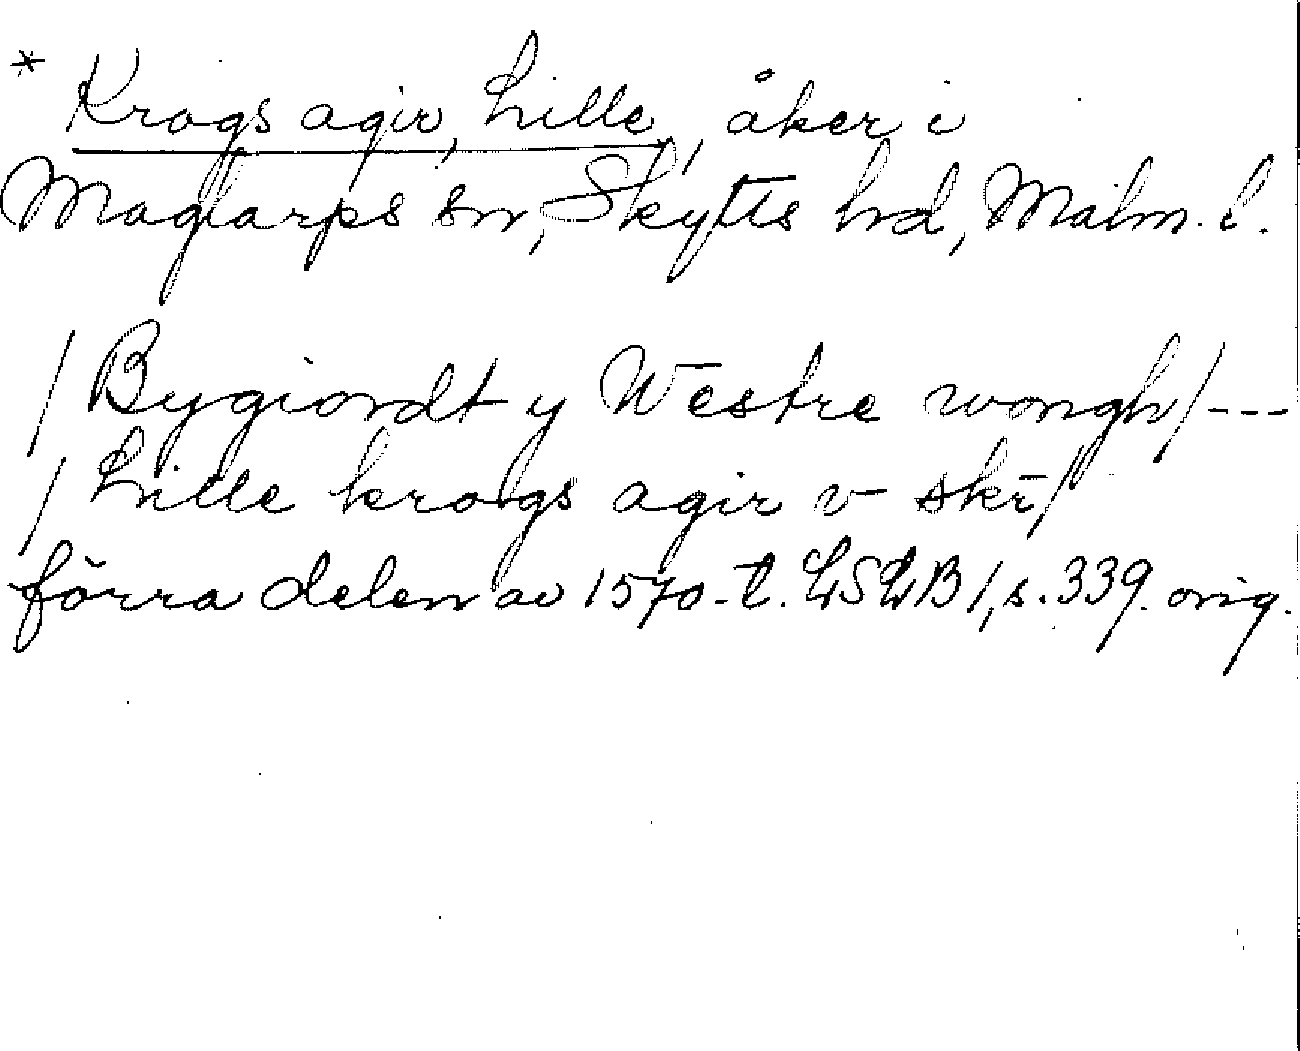 * Krogs agir, Lille, åker i
Maglarps sn, Skytts hd, Malm. l.
/Bygiordt y Westre wongh/---
/Lille krogs agir v skr/
förra delen av 1570-t. LSLB 1, s. 339. orig.